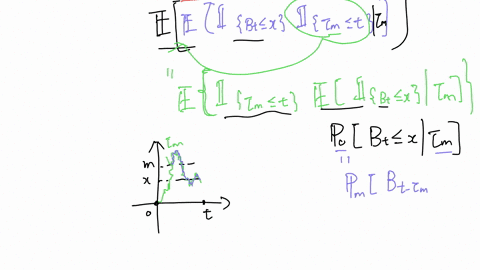 𝔼[𝔼(𝟙_{B_t ≤ x} 𝟙_{τ_m ≤ t} | τ_m])
=
𝔼{𝟙_{τ_m ≤ t} 𝔼[𝟙_{B_t ≤ x} | τ_m]}
ℙ_0[B_t ≤ x | τ_m]
=
ℙ_m[B_{t-τ_m}
τ_m
m
x
0 t